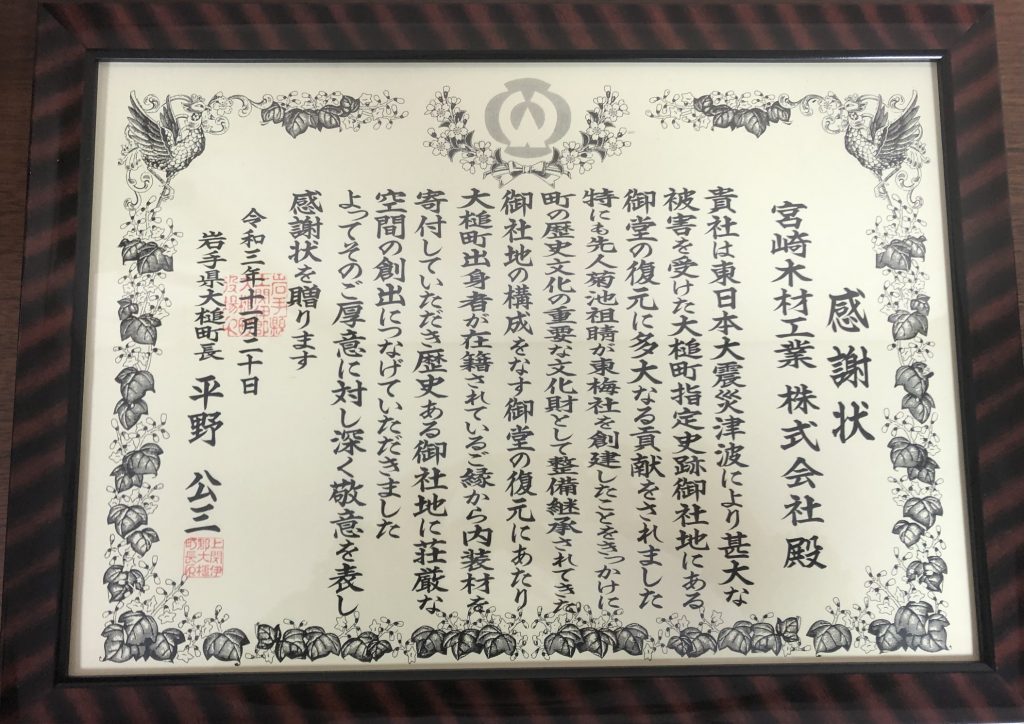 感謝状
宮崎木材工業 株式会社 殿
貴社は東日本大震災津波により甚大な
被害を受けた大槌町指定史跡御社地にある
御堂の復元に多大なる貢献をされました
特にも先人菊池祖晴が東梅社を創建したことをきっかけに
町の歴史文化の重要な文化財として整備継承されてきた
御社地の構成をなす御堂の復元にあたり
大槌町出身者が在籍されているご縁から内装材を
寄付していただき歴史ある御社地に荘厳な
空間の創出につなげていただきました
よってそのご厚意に対し深く敬意を表し
感謝状を贈ります
令和三年十一月二十日
岩手県大槌町長 平野 公三